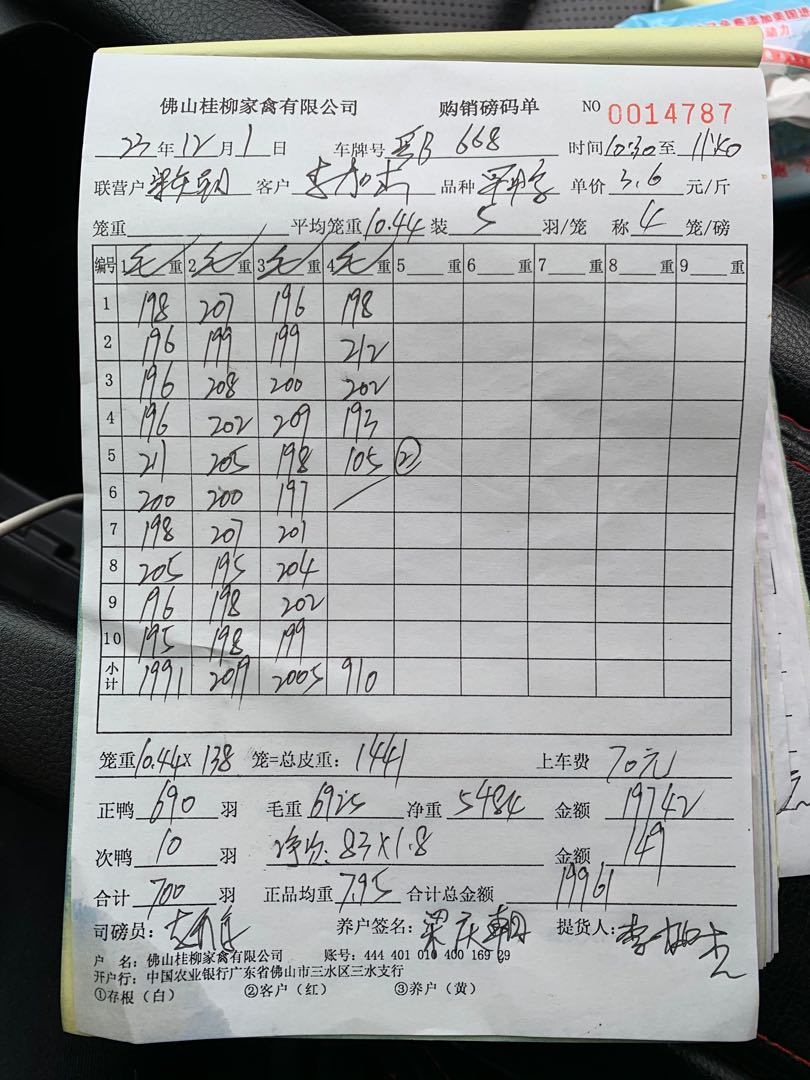 佛山桂柳家禽有限公司 购销磅码单 NO 0014787
23年12月1日 车牌号 668 时间10:30至11:40
联营户 客户 李加杰 品种 单价3.6元/斤
笼重 平均笼重10.44装5羽/笼 称4笼/磅
编号 1毛重 2毛重 3毛重 4毛重 5重 6重 7重 8重 9重
1 198 207 196 198
2 196 199 199 212
3 196 208 200 202
4 196 202 209 193
5 211 205 198 105 ②
6 200 200 197
7 198 207 201
8 205 195 204
9 196 198 202
10 195 198 199
小计 1991 2019 2005 910
笼重10.44×138笼=总皮重:1441 上车费70元
正鸭690羽 毛重6925 净重5484 金额19742
次鸭10羽 净次:83×1.8 金额149
合计700羽 正品均重7.95 合计总金额19961
司磅员: 养户签名:梁庆朝 提货人:李加杰
户 名:佛山桂柳家禽有限公司 账号:444 401 010 400 169 29
开户行:中国农业银行广东省佛山市三水区三水支行
①存根(白) ②客户(红) ③养户(黄)